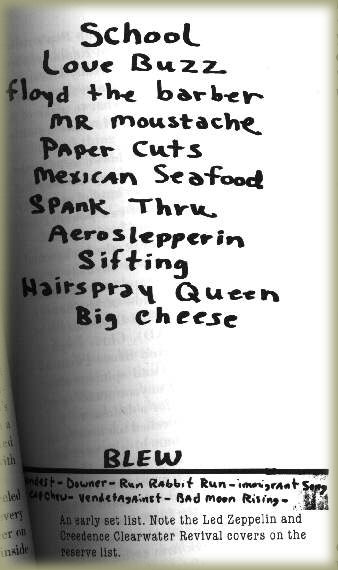 School
Love Buzz
floyd the barber
MR moustache
PAPER CUTS
MEXICAN Seafood
SPANK THRU
Aeroslepperin
Sifting
Hairspray Queen
Big cheese
BLEW
- Downer - Run Rabbit Run - immigrant Song
- Vendetagainst - BAD Moon Rising -
An early set list. Note the Led Zeppelin and
Creedence Clearwater Revival covers on the
reserve list.